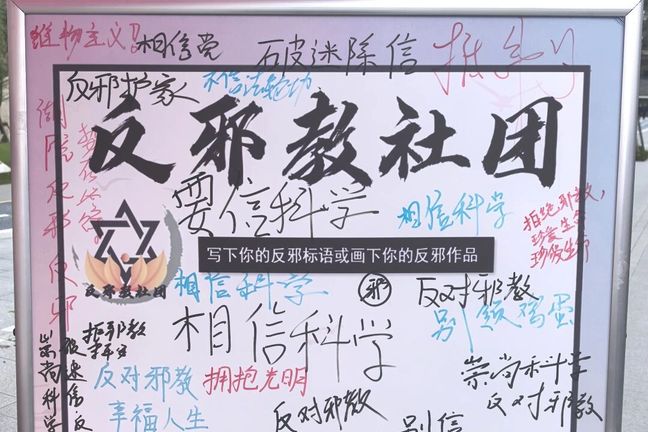 唯物主义
相信党
破迷除信
反邪护家
不信法轮功
反邪教社团
要信科学
相信科学
拒绝邪教,
珍爱生命
写下你的反邪标语或画下你的反邪作品
反邪教社团
相信科学
邪
反对邪教
别领鸡蛋
相信科学
拒邪教
崇尚科学
崇尚科学
反对邪教
反对邪教
拥抱光明
幸福人生
反对邪教
别信